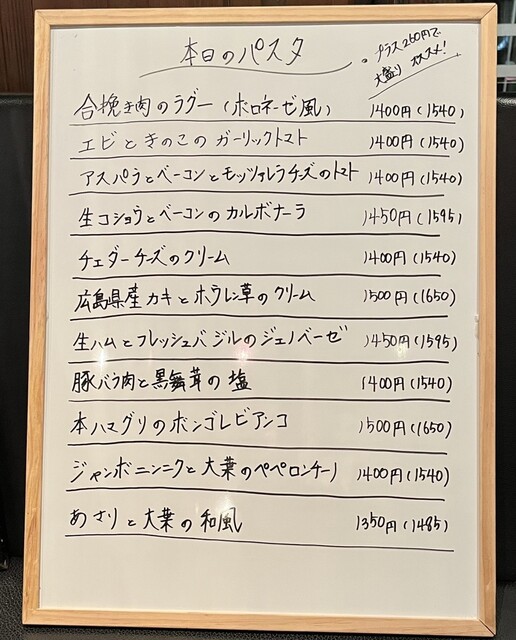 本日のパスタ
・プラス250円で
大盛り オススメ!
合挽き肉のラグー(ボロネーゼ風) 1400円(1540)
エビときのこのガーリックトマト 1400円(1540)
アスパラとベーコンとモッツァレラチーズのトマト 1400円(1540)
生コショウとベーコンのカルボナーラ 1450円(1595)
チェダーチーズのクリーム 1400円(1540)
広島県産カキとホウレン草のクリーム 1500円(1650)
生ハムとフレッシュバジルのジェノベーゼ 1450円(1595)
豚バラ肉と黒舞茸の塩 1400円(1540)
本ハマグリのボンゴレビアンコ 1500円(1650)
ジャンボニンニクと大葉のペペロンチーノ 1400円(1540)
あさりと大葉の和風 1350円(1485)